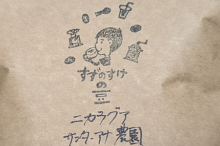 すずのすけ
の
豆
ニカラグア
サンタ・アナ 農園